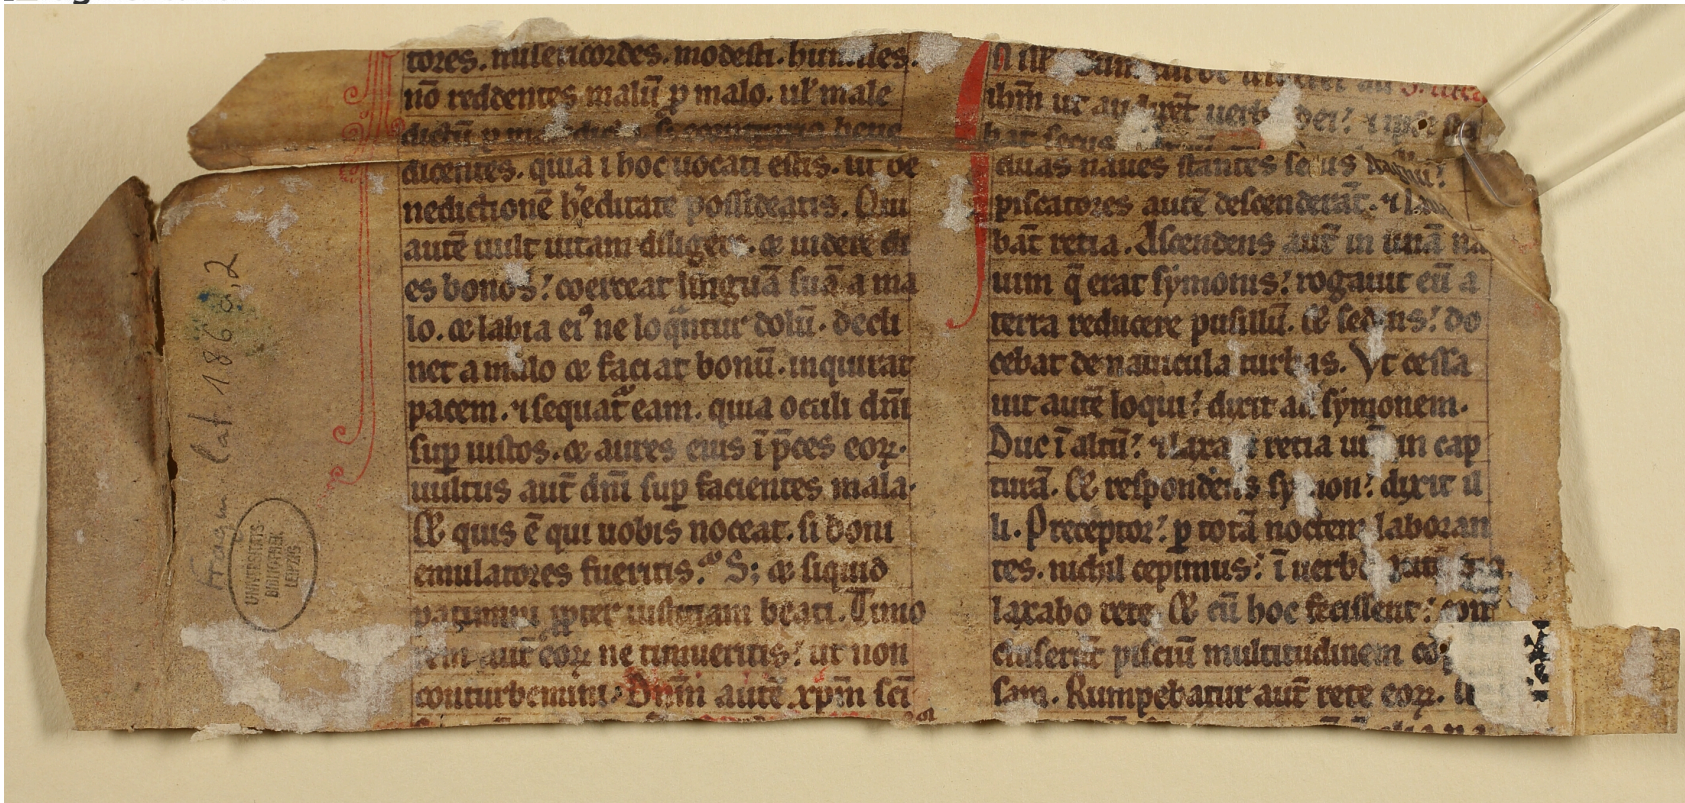 tores. misericordes. modesti. humiles.
nō reddentes malū ꝑ malo. ul' male
dictū ꝑ bene
dicentes. quia ī hoc uocati estis. ut be
nedictionē h'editate possideatis. Qui
autē uult uitam diligere. ⁊ uidere di
es bonos: coerceat linguā suā a ma
lo. ⁊ labia ei⁹ ne loquntur dolū. decli
net a malo ⁊ faciat bonū. inquirat
pacem. ⁊ sequat̄ eam. quia oculi dn̄i
suꝑ iustos. ⁊ aures eius ī p̄ces eoꝝ.
uultus aut̄ dn̄i suꝑ facientes mala.
Et quis ē qui uobis noceat. si boni
emulatores fueritis. S; ⁊ siquid
patimini ꝓpter iusticiam beati. Timo
rem aut̄ eoꝝ ne timueritis: ut non
conturbemini. Dn̄m autē xp̄m sc̄i
uerb dei: ⁊ ip̄e sta
bat secus
duas naues stantes secus
piscatores autē descenderāt. ⁊ laua
bāt retia. Ascendens aut̄ in unā na
uim q̄ erat symonis: rogauit eū a
terra reducere pusillū. Et sedens: do
cebat de nauicula turbas. Vt cessa
uit autē loqui: dixit ad symonem.
Duc ī altū: ⁊ laxa retia ur̄a in cap
turā. Et respondens symon: dixit il
li. Preceptor: ꝑ totā noctem laboran
tes. nichil cepimus: ī uerbo autē tuo
laxabo rete. Et cū hoc fecissent: con
cluserūt pisciū multitudinem copio
sam. Rumpebatur aut̄ rete eoꝝ.
Fragm. lat. 186 a,2
UNIVERSITÄTS
BIBLIOTHEK
LEIPZIG